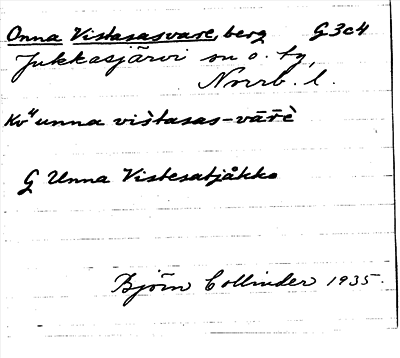 Onna Vistasasvare, berg G3c4
Jukkasjärvi sn o. tg,
Norrb. l.
Kv" unna vistasas-vārē
G Unna Vistesatjåkko
Björn Collinder 1935.